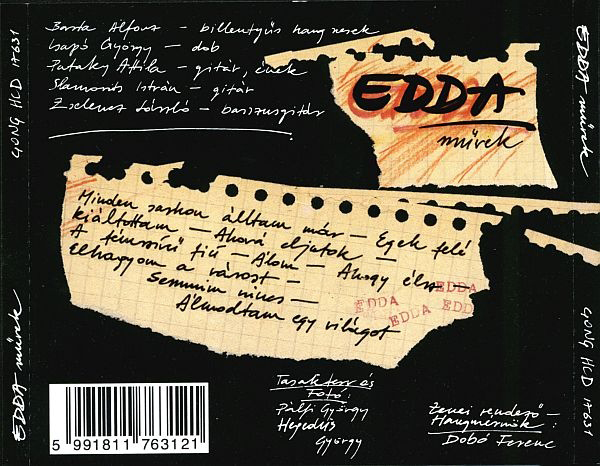 Barta Alfonz – billentyűs hangszerek
Csapó György – dob
Pataky Attila – gitár, ének
Slamovits István – gitár
Zselencz László – basszusgitár
EDDA
művek
Minden sarkon álltam már – Egek felé
kiáltottam – Ahová eljutok –
A fémszívű fiú – Álom – Ahogy élsz –
Elhagyom a várost –
Semmim nincs –
Álmodtam egy világot
EDDA
EDDA
EDDA
EDD
Tasakterv és
Fotó:
Pálfi György
Hegedűs
György
Zenei rendező –
Hangmérnök:
Dobó Ferenc
5 991811 763121
GONG HCD 17631
EDDA művek
EDDA művek
GONG HCD 17631